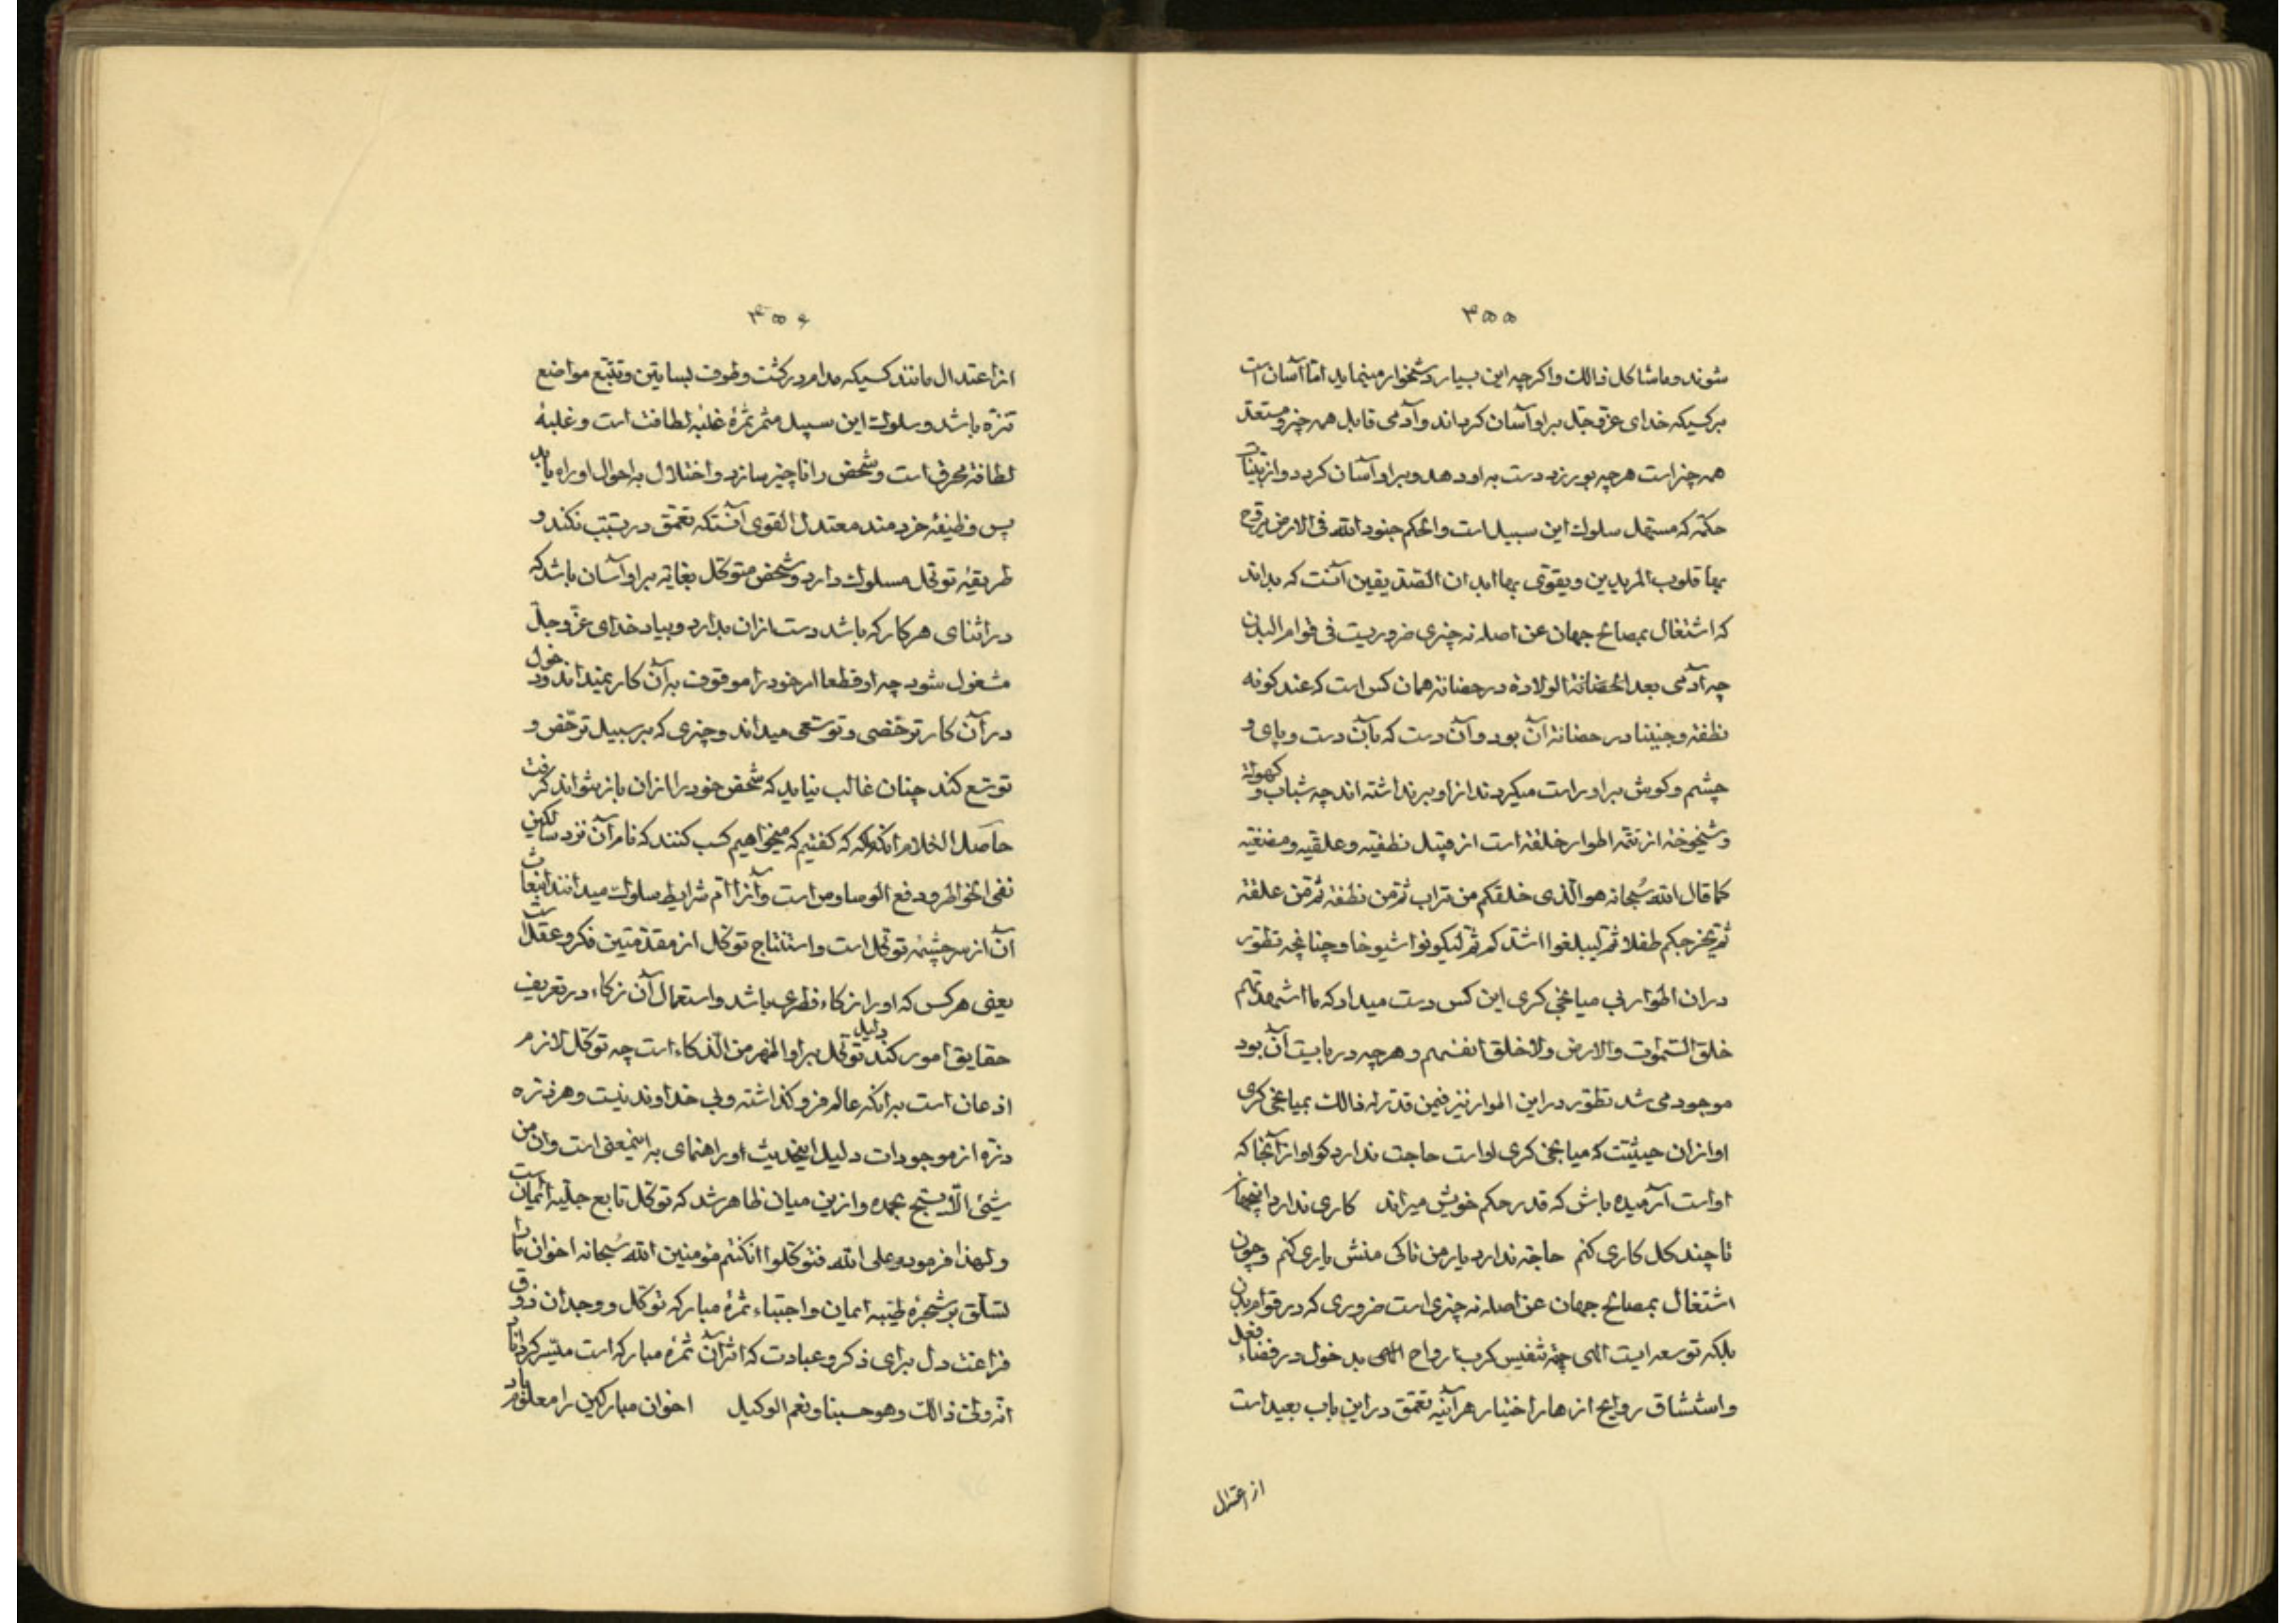 ۳۵۵
شوند و ماشاکل ذالک و اکرچه این بسیار دشخوار مینماید اما آسان است
برکسیکه خدای عزوجل براو آسان کرداند و آدمی قابل همه چیز و مستعد
همه چیز است هرچه بورزد دست به او دهد و براو آسان کردد و از بینات
حکمة که مستهل سلوک این سبیل است والحکم جنود الله فی الارض یروح
بها قلوب المریدین و یقوی بها ابدان الصدیقین آنست که بداند
که اشتغال بمصالح جهان عن اصله نه چیزی ضروریست فی قوام البدن
چه آدمی بعد الحضانة الولادة در حضانة همان کس است که عند کونه
نطفة و جنینا در حضانة آن بود و آن دست که بآن دست و پای و
چشم و کوش براو راست میکردند از او برنداشته اند چه شباب و کهولة
و شیخوخة از تتمه اطوار خلقة است از قبیل نطفیه و علقیه و مضغیه
کما قال الله سُبحانه هو الّذی خلقکم من تراب ثم من نطفة ثم من علقة
ثم یخرجکم طفلا ثم لتبلغوا اشدکم ثم لتکونوا شیوخا و چنانچه تطور
دران اطوار بی میانجی کری این کس دست میداد که ما اشهدتهم
خلق السموات والارض ولا خلق انفسهم و هرچه دربایست آن بود
موجود می شد تطور دراین اطوار نیز فیمن قدر له ذالک بمیانجی کری
او ازان حیثیت که میانجی کری اواست حاجت ندارد کو او ازآنجا که
اواست آرمیده باش که قدر حکم خویش میراند کاری ندارد اینجهان
تا چند کل کاری کنم حاجة ندارد یار من تا کی منش یاری کنم و چون
اشتغال بمصالح جهان عن اصله نه چیزی است ضروری که در قوام بدن
بلکه توسعه ایست الهی جهة تنفیس کرب ارواح الهی بدخول در فضاء فعل
و استنشاق روایح ازهار اختیار هرآینه تعمق دراین باب بعید است
از اعتدال
۳۵۶
از اعتدال مانند کسیکه مدام در کشت و طوف بساتین و تتبع مواضع
تنزه باشد و سلوک این سبیل مثمر ثمرهٔ غلبهٔ لطافت است و غلبهٔ
لطافة محرق است و شخص را ناچیز سازد و اختلال به احوال او راه یابد
پس وظیفهٔ خردمند معتدل القوی آنستکه تعمق در تسبب نکند و
طریقهٔ توکل مسلوک دارد و شخص متوکل بغایة براو آسان باشد که
در اثنای هر کار که باشد دست ازان بدارد و بیاد خدای عزوجل
مشغول شود چه او قطعا امر خود را موقوف به آن کار نمیداند و دخول
در آن کار ترخصی و توسعی میداند و چیزی که بر سبیل ترخص و
توسع کند چنان غالب نیاید که شخص خود را ازان باز نتواند کرفت
حاصل الکلام آنکه که کفتیم که میخواهیم کسب کنند که نام آن نزد سالکین
نفی الخواطر و دفع الوساوس است و آنرا ام شرایط سلوک میدانند انبعاث
آن از سرچشمهٔ توکل است و استنتاج توکل از مقدمتین فکر و عقل است
یعنی هرکس که او را زکاء فطری باشد و استعمال آن زکاء در تعریف
حقایق امور کند دلیل توکل براو اظهر من الذکاء است چه توکل لازم
اذعان است برانکه عالم فروکذاشته و بی خداوند نیست و هر ذره
ذره از موجودات دلیل اینحدیث او راهنمای به اینمعنی است وان من
شیئ الّا یسبح بحمده و ازین میان ظاهر شد که توکل تابع جلیه ایمان است
و لهذا فرموده وعلی الله فتوکلوا انکنتم مؤمنین الله سُبحانه اخوان ما را
تسلق بر شجرهٔ طیبه ایمان و اجتناء ثمرهٔ مبارکه توکل و وجدان ذوق
فراغت دل برای ذکر و عبادت که اثر آن ثمرهٔ مبارکه است میسر کرداناد
انه ولی ذالک و هو حسبنا و نعم الوکیل اخوان مبارکین را معلوم باد